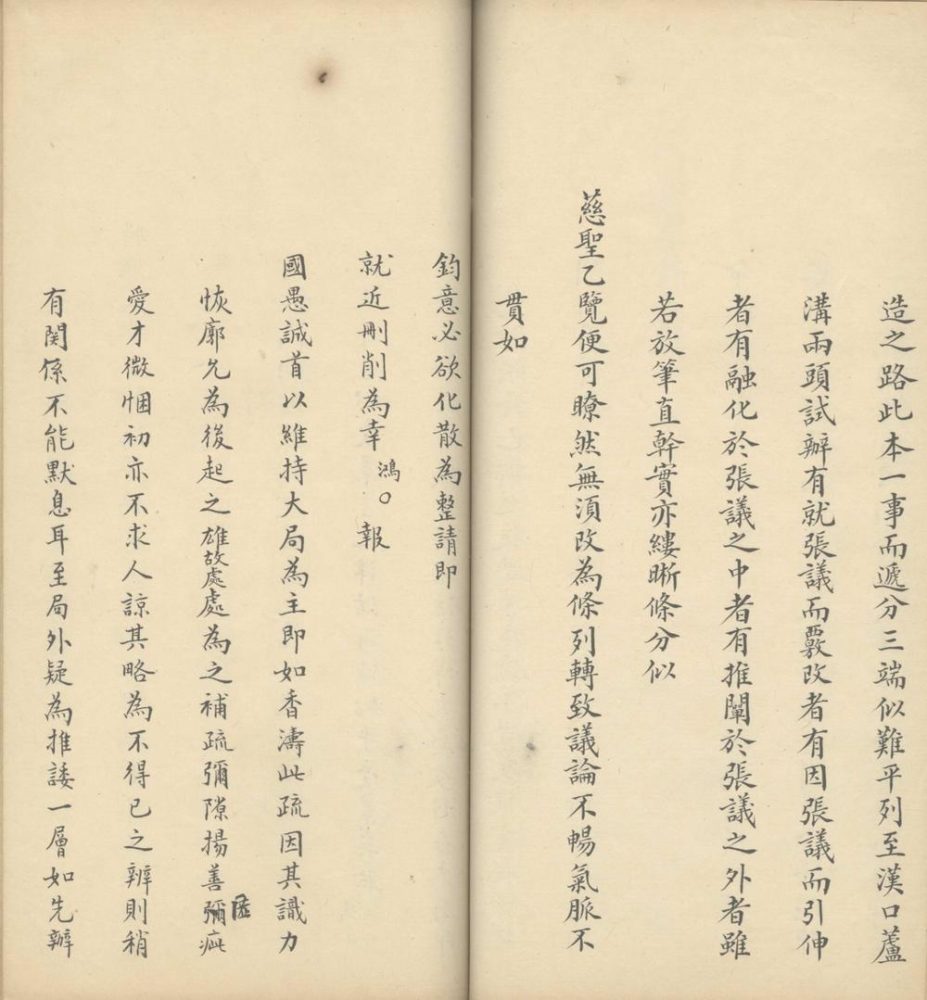 造之路此本一事而遞分三端似難平列至漢口蘆
溝兩頭試辦有就張議而覈改者有因張議而引伸
者有融化於張議之中者有推闡於張議之外者雖
若放筆直幹實亦縷晰條分似
慈聖乙覽便可瞭然無須改為條列轉致議論不暢氣脈不
貫如
鈞意必欲化散為整請即
就近刪削為幸鴻〇報
國愚誠首以維持大局為主即如香濤此疏因其識力
恢廓允為後起之雄故處處為之補疏彌隙揚善彌疵匿
愛才微悃初亦不求人諒其略為不得已之辨則稍
有関係不能默息耳至局外疑為推諉一層如先辦